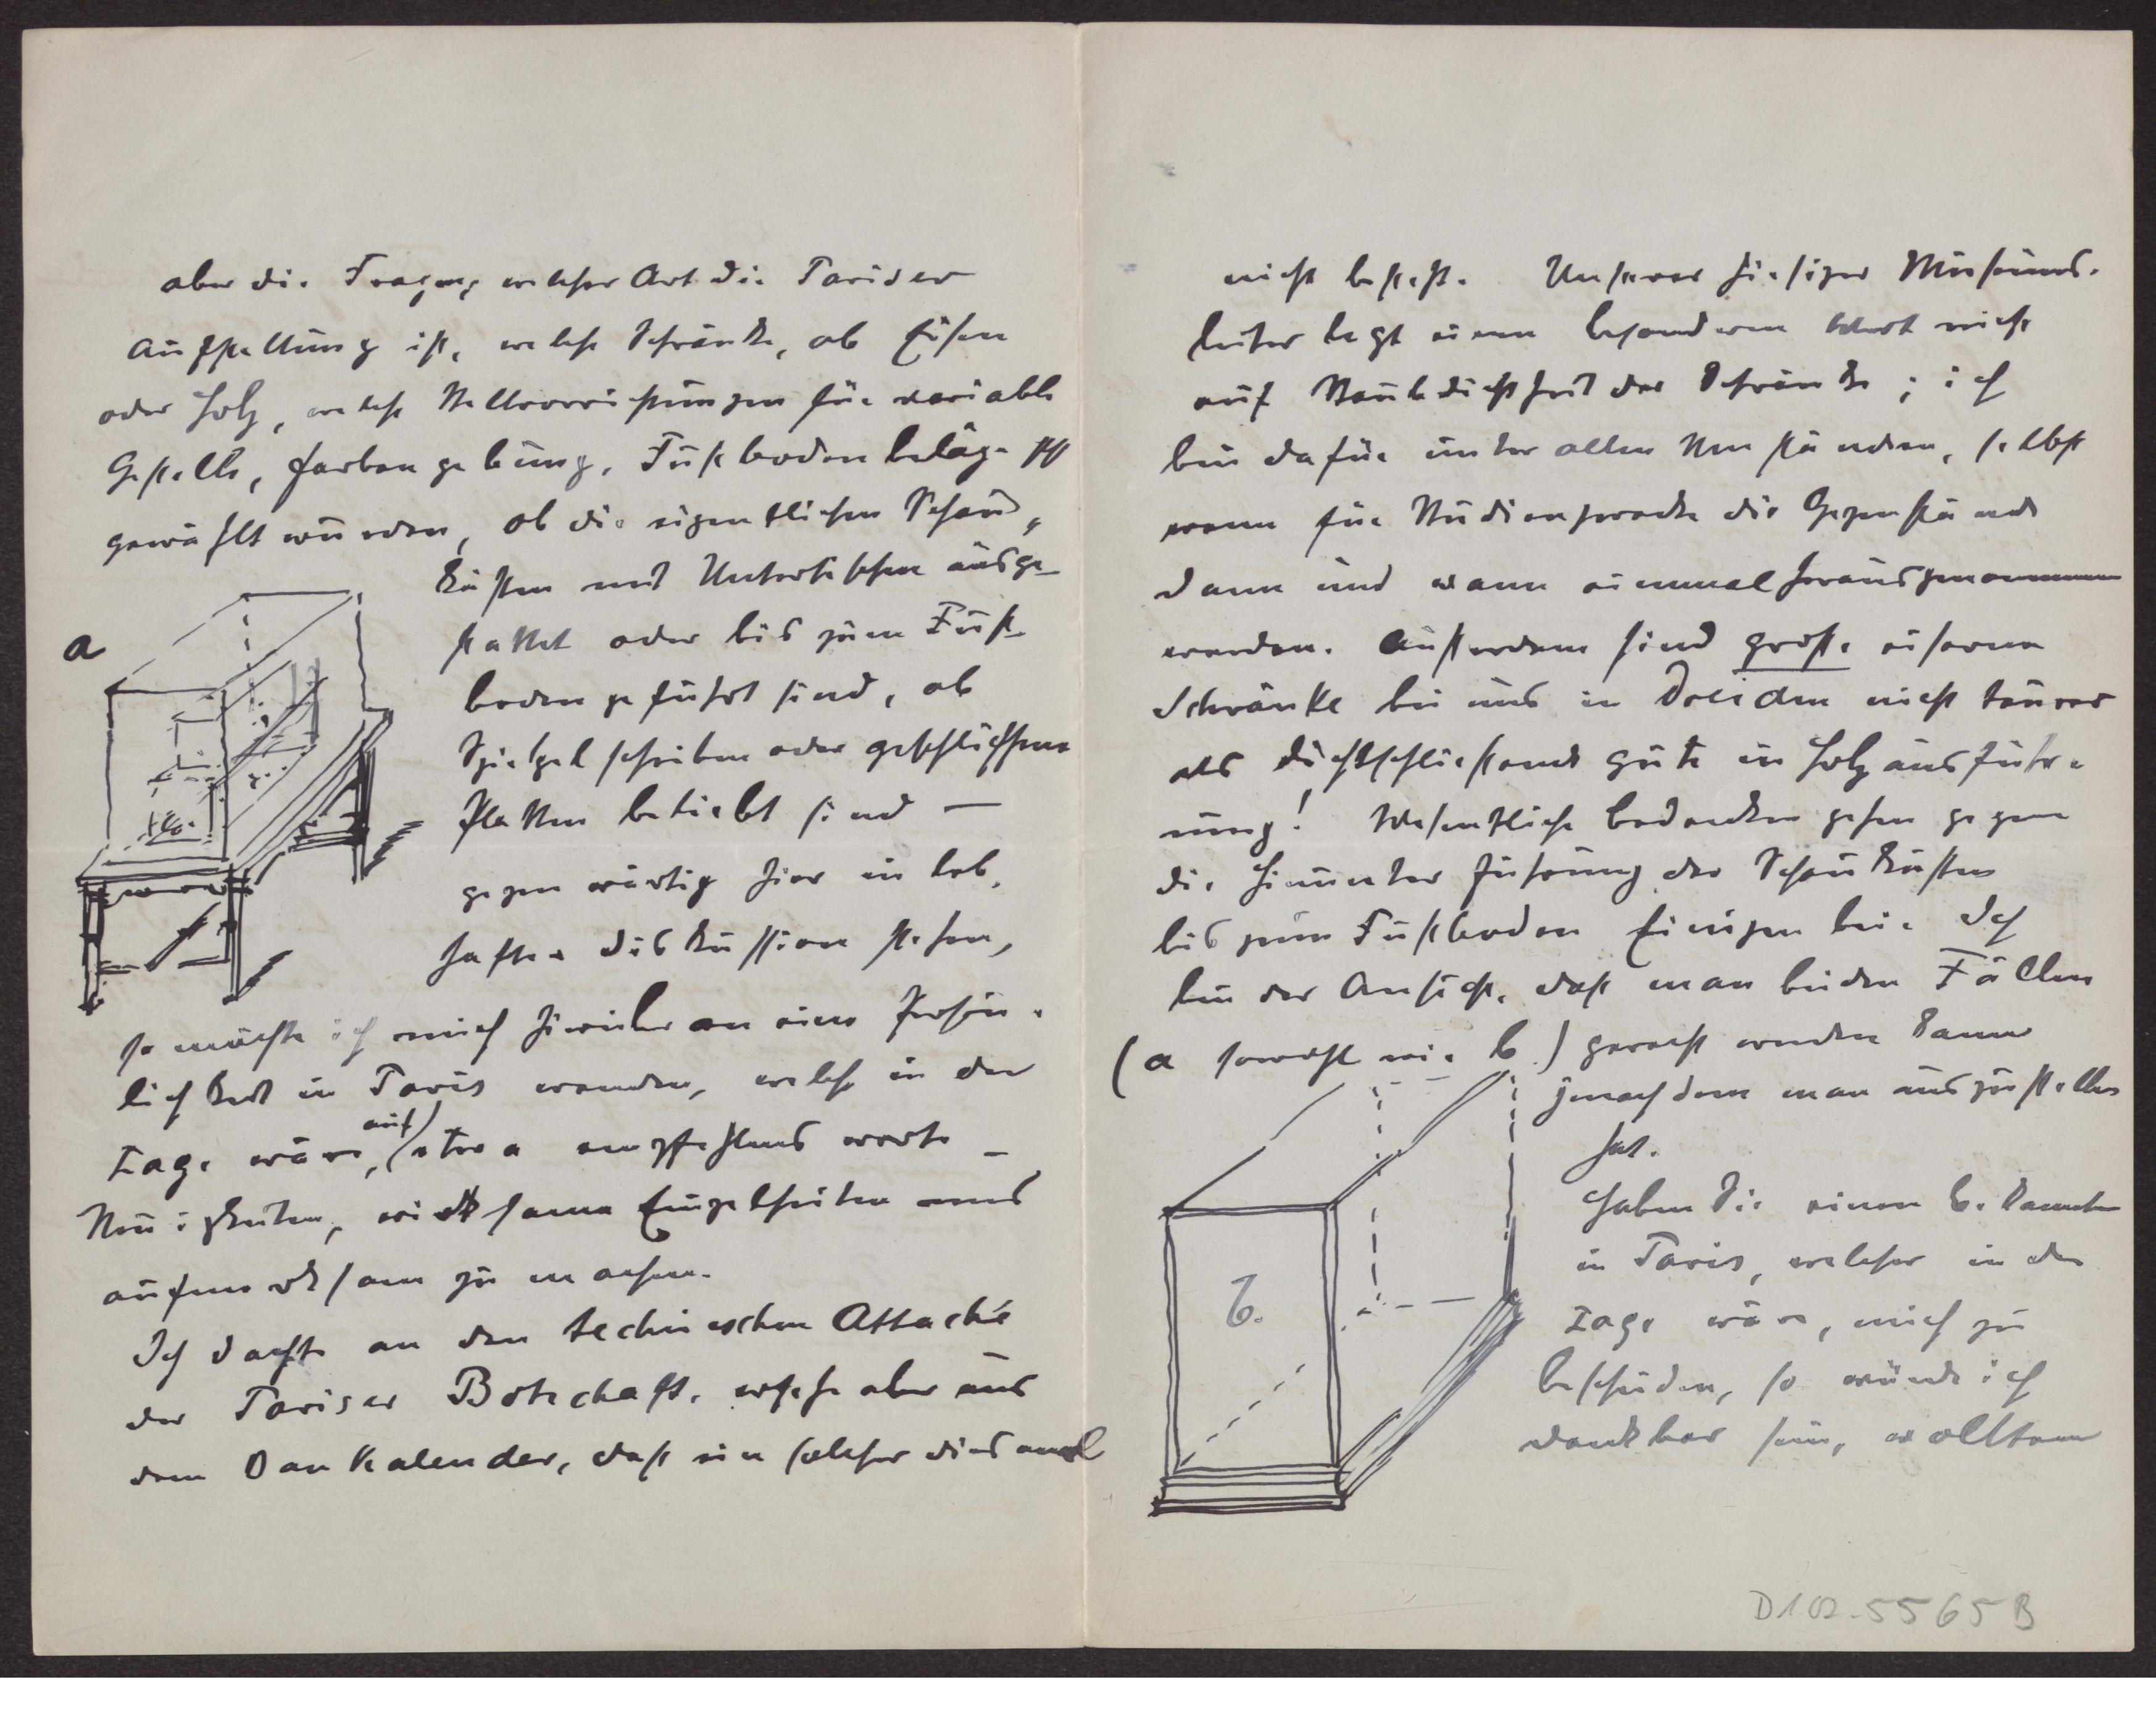 aber die Fragen, welcher Art die Pariser
Aufstellung ist, welche Schränke, ob Eisen
oder Holz, welche Stellvorrichtungen für variable
Gestelle, Farbengebung, Fußbodenbeläge pp
gewählt wurden, ob die eigentlichen Schau„
kästen mit Untertischen ausge-
stattet oder bis zum Fuß-
boden geführt sind, ob
Spiegelscheiben oder geschliffene
Platten beliebt sind —
gegenwärtig hier in leb.
hafter Diskussion stehen,
a
so möchte ich mich hierüber an eine Persön.
lichkeit in Paris wenden, welche in der
Lage wäre, auf etwa empfehlenswerte
Neuigkeiten, wirksame Einzelheiten uns
aufmerksam zu machen.
Ich dachte an den technischen Attaché
der Pariser Botschaft, ersehe aber aus
dem Baukalender, daß ein solcher diesmal
nicht besteht. Unserer hiesiger Museums.
leiter legt einen besonderen Wert nicht
auf Staubdichtheit der Schränke; ich
bin dafür unter allen Umständen, selbst
wenn für Studienzwecke die Gegenstände
dann und wann einmal herausgenommen
werden. Außerdem sind große eiserne
Schränke bei uns in Dresden nicht teurer
als dichtschließende gute in Holzausfüh-
rung! Wesentliche Bedenken gehen gegen
die Hinunterführung der Schaukästen
bis zum Fußboden Einigen bei. Ich
bin der Ansicht, daß man beiden Fällen
(a sowohl wie b) gerecht werden kann
jenachdem man auszustellen
hat.
b.
Haben Sie einen Bekannten
in Paris, welcher in der
Lage wäre, mich zu
bescheiden, so würde ich
dankbar sein, wollten
D102.5565B